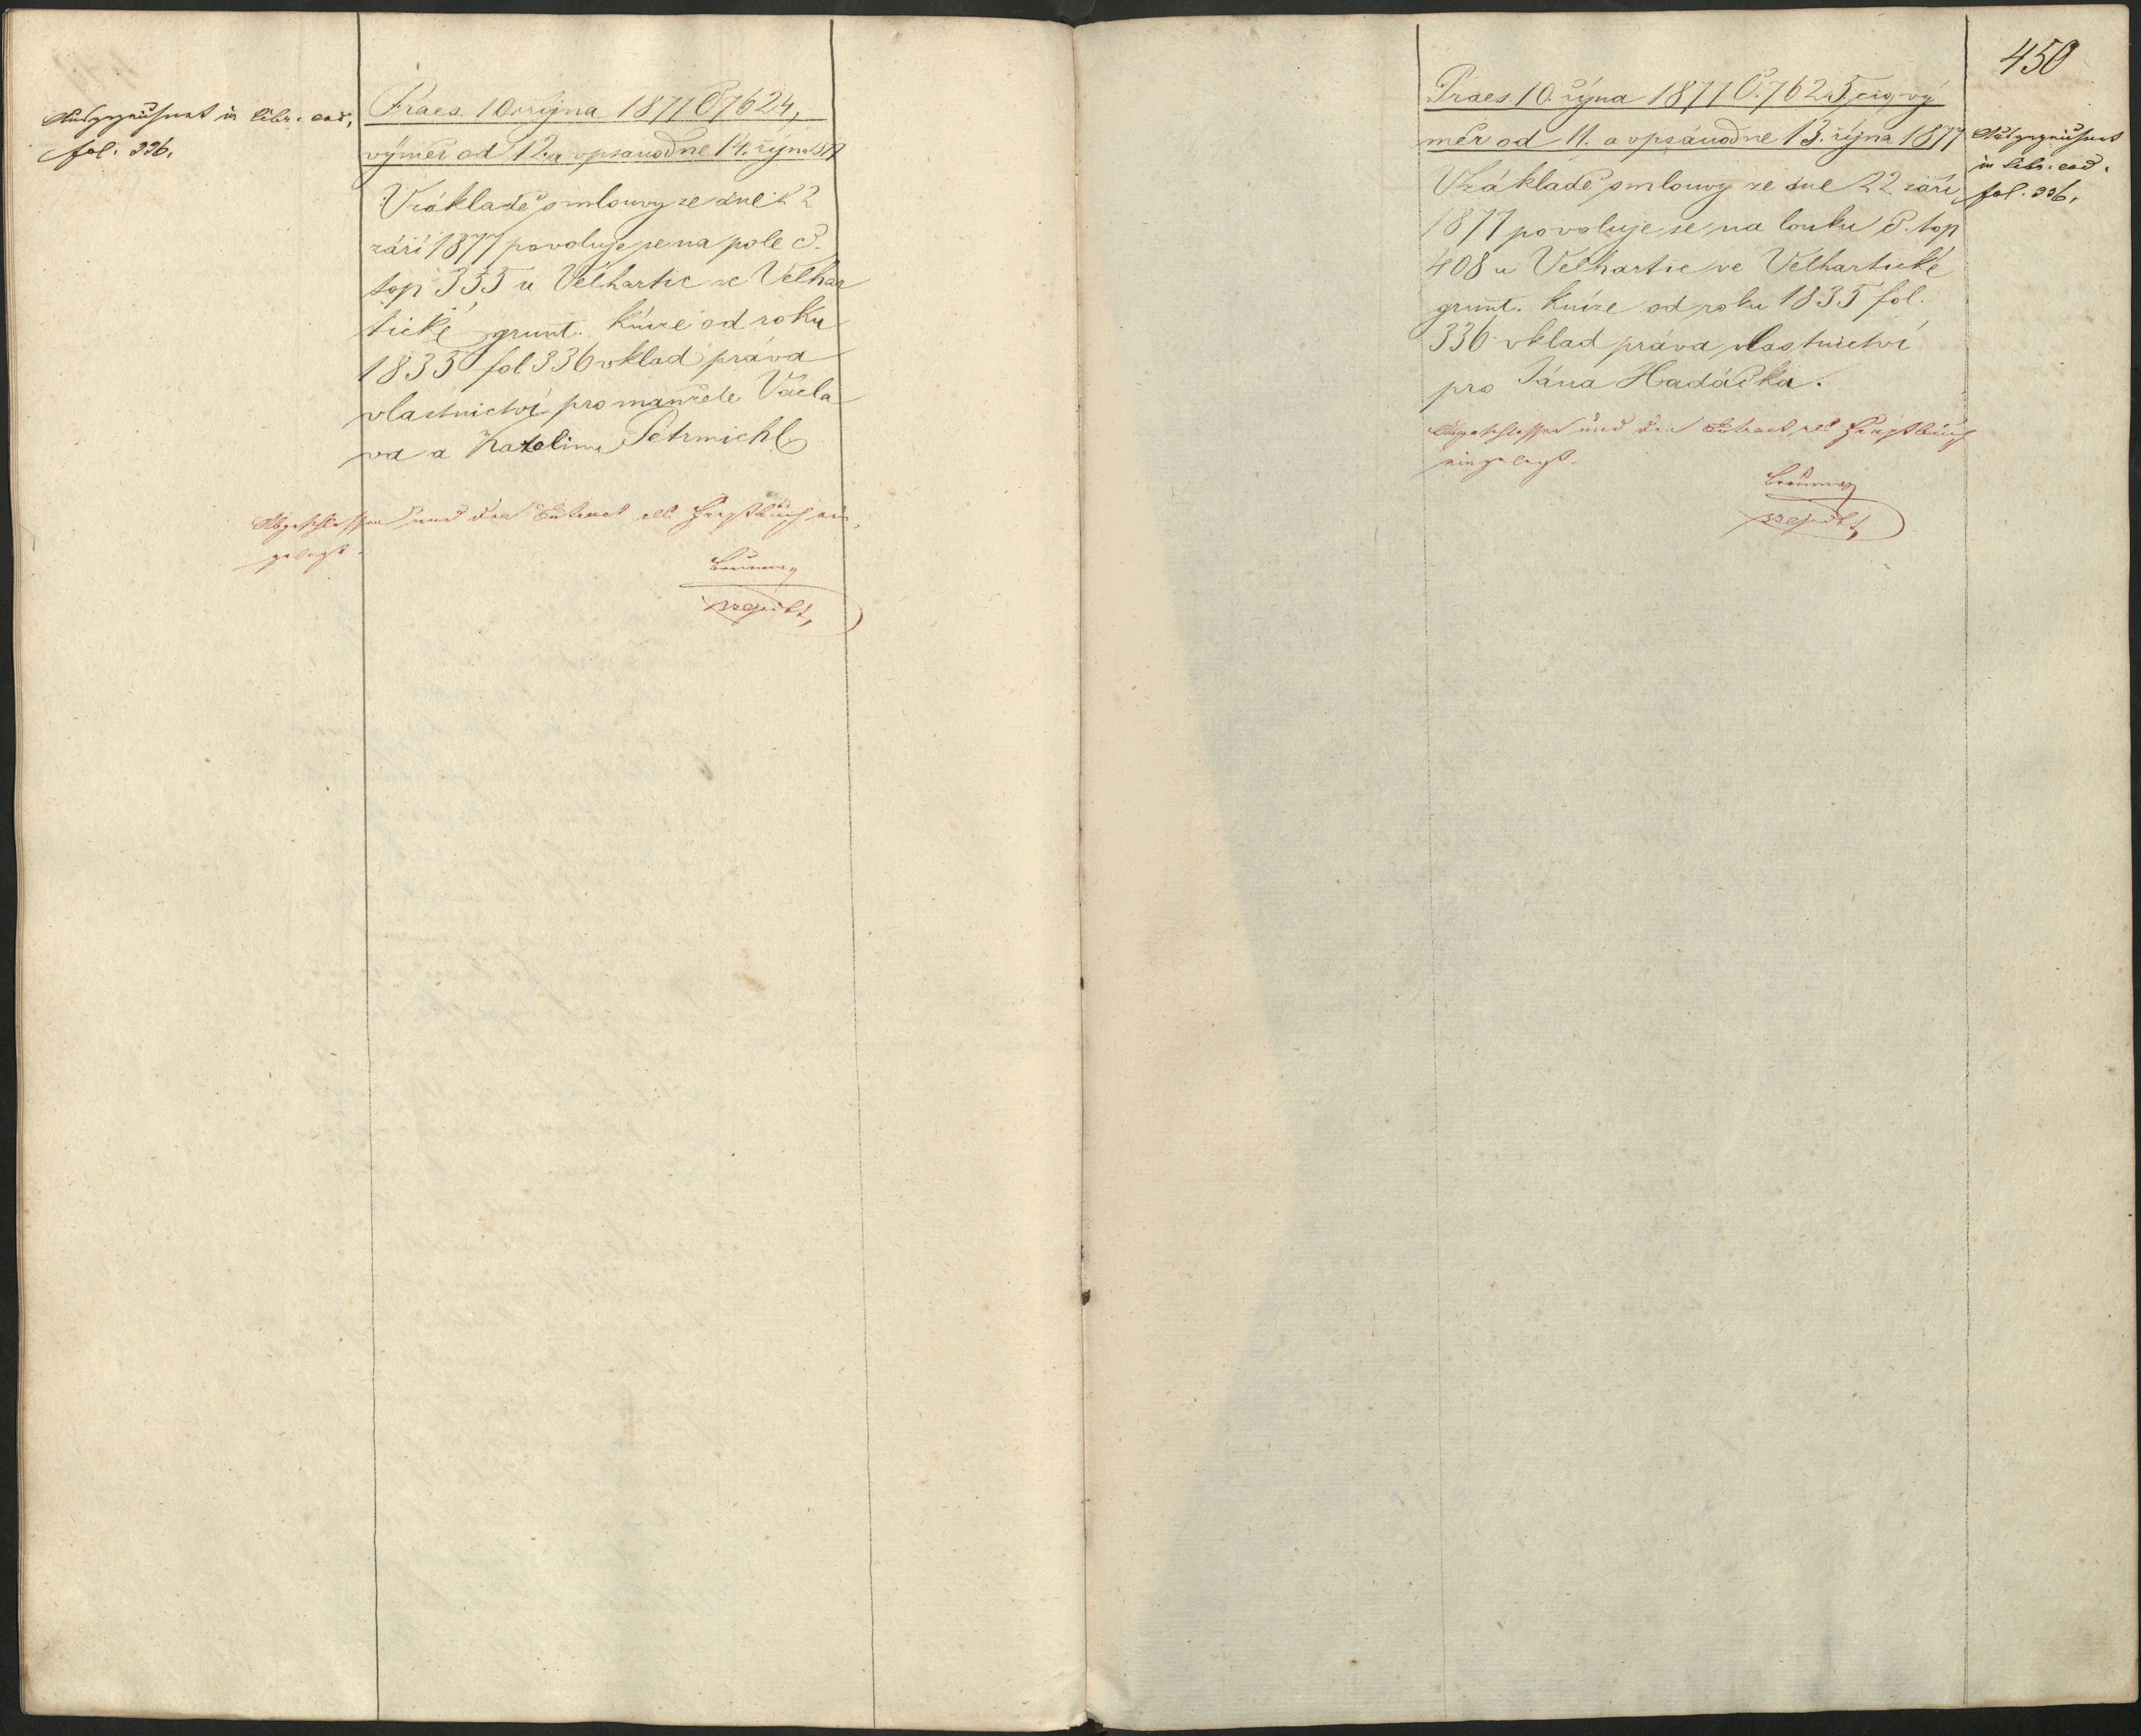 in libr. eod.
fol. 336.
Praes. 10. října 1877 Č 7624,
výměr od 12. a vpsáno dne 14. října 1877
V základě smlouvy ze dne 22
září 1877 povoluje se na pole č.
top 355 u Velhartic ve Velhar
tické grunt. knize od roku
1835 fol 336 vklad práva
vlastnictví pro manžele Václa
va a Katelinu Petrmichl
Abgeschlossen und der Extract als Hauptbuch ein
gelegt.
450
Praes. 10. října 1877 Č. 7625 civ, vý
měr od 11. a vpsáno dne 13. října 1877
V základě smlouvy ze dne 22 září
1877 povoluje se na louku č. top
408 u Velhartic ve Velhartické
grunt. knize od roku 1835 fol.
336 vklad práva vlastnictví
pro Jána Hadáčka.
in libr. eod.
fol. 336.
Abgeschlossen und der Extract als Hauptbuch
eingelegt.